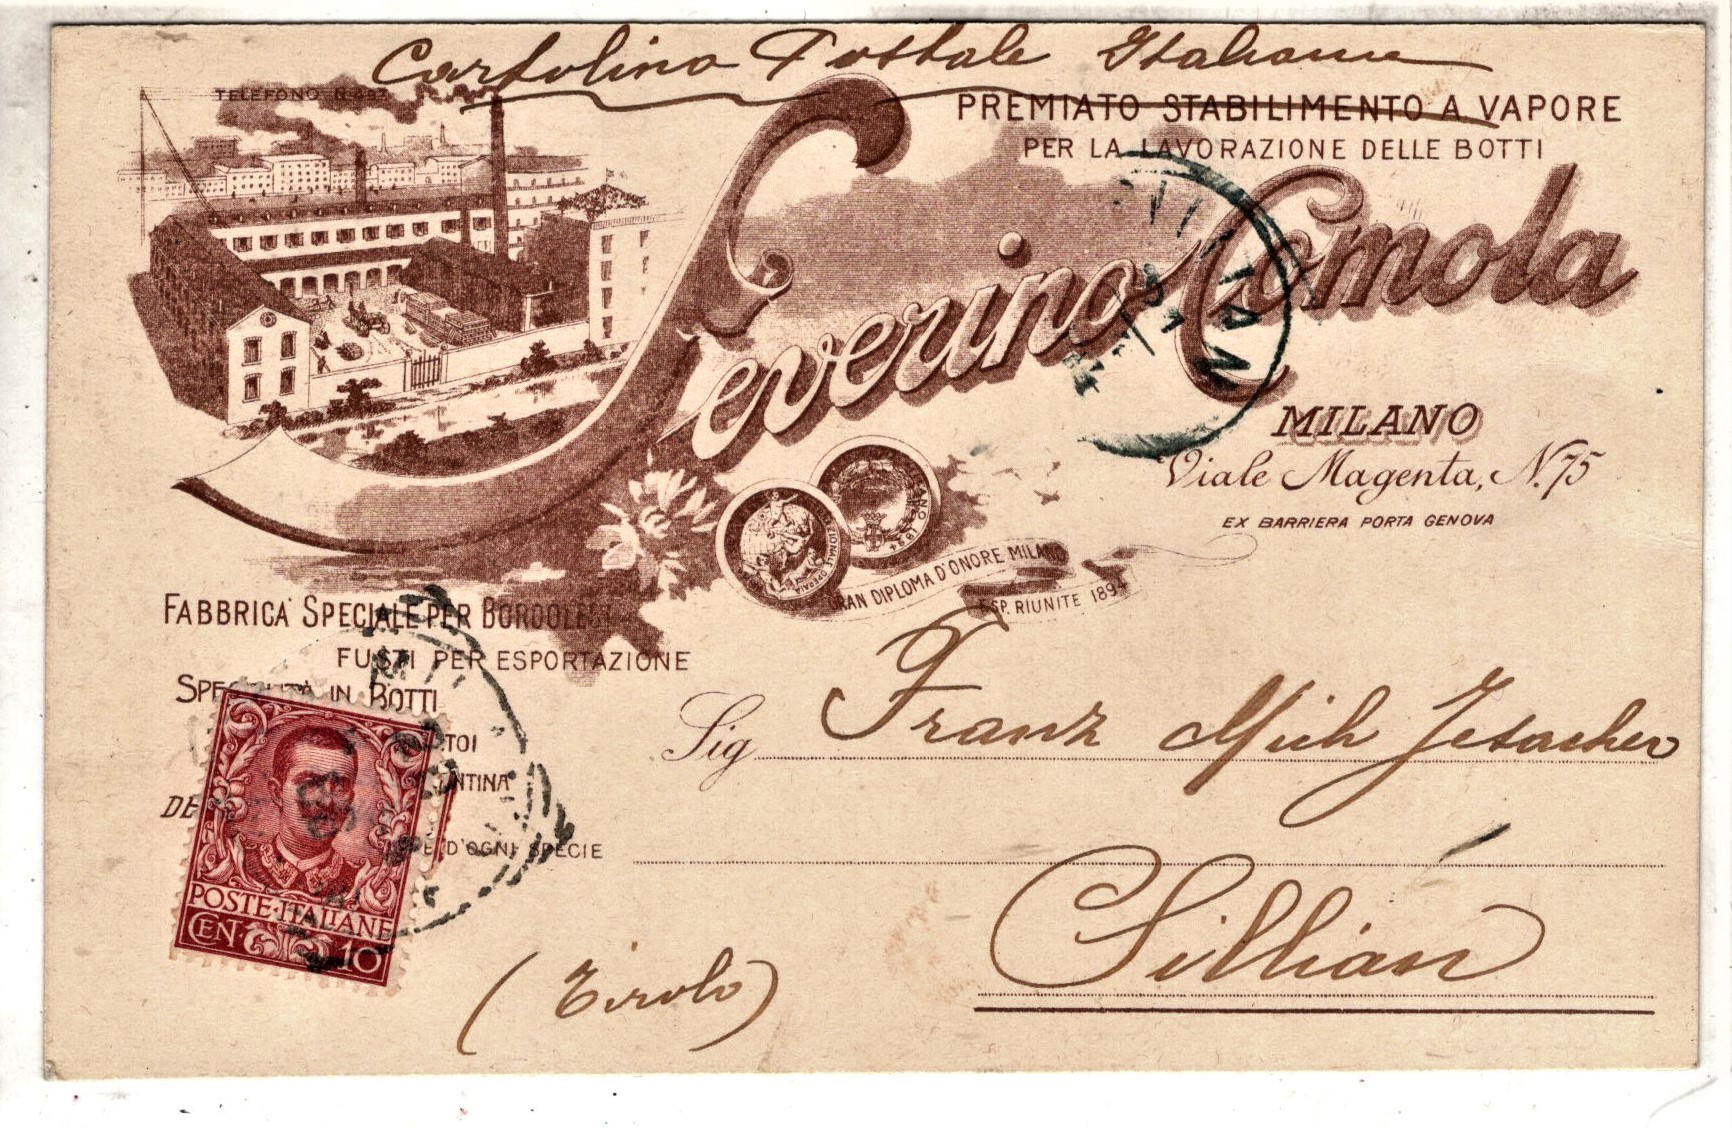 Cartolina Postale Italiana
TELEFONO N.
PREMIATO STABILIMENTO A VAPORE
PER LA LAVORAZIONE DELLE BOTTI
Severino Comola
MILANO
Viale Magenta, N. 75
EX BARRIERA PORTA GENOVA
GRAN DIPLOMA D'ONORE MILANO
ESP. RIUNITE 1894
FABBRICA SPECIALE PER BORDOLESI
FUSTI PER ESPORTAZIONE
SPECIALITÀ IN BOTTI
D'OGNI SPECIE
Sig Franz Mich Jesacher
Sillian
(Tirolo)
POSTE·ITALIANE
CEN. 10
MILANO